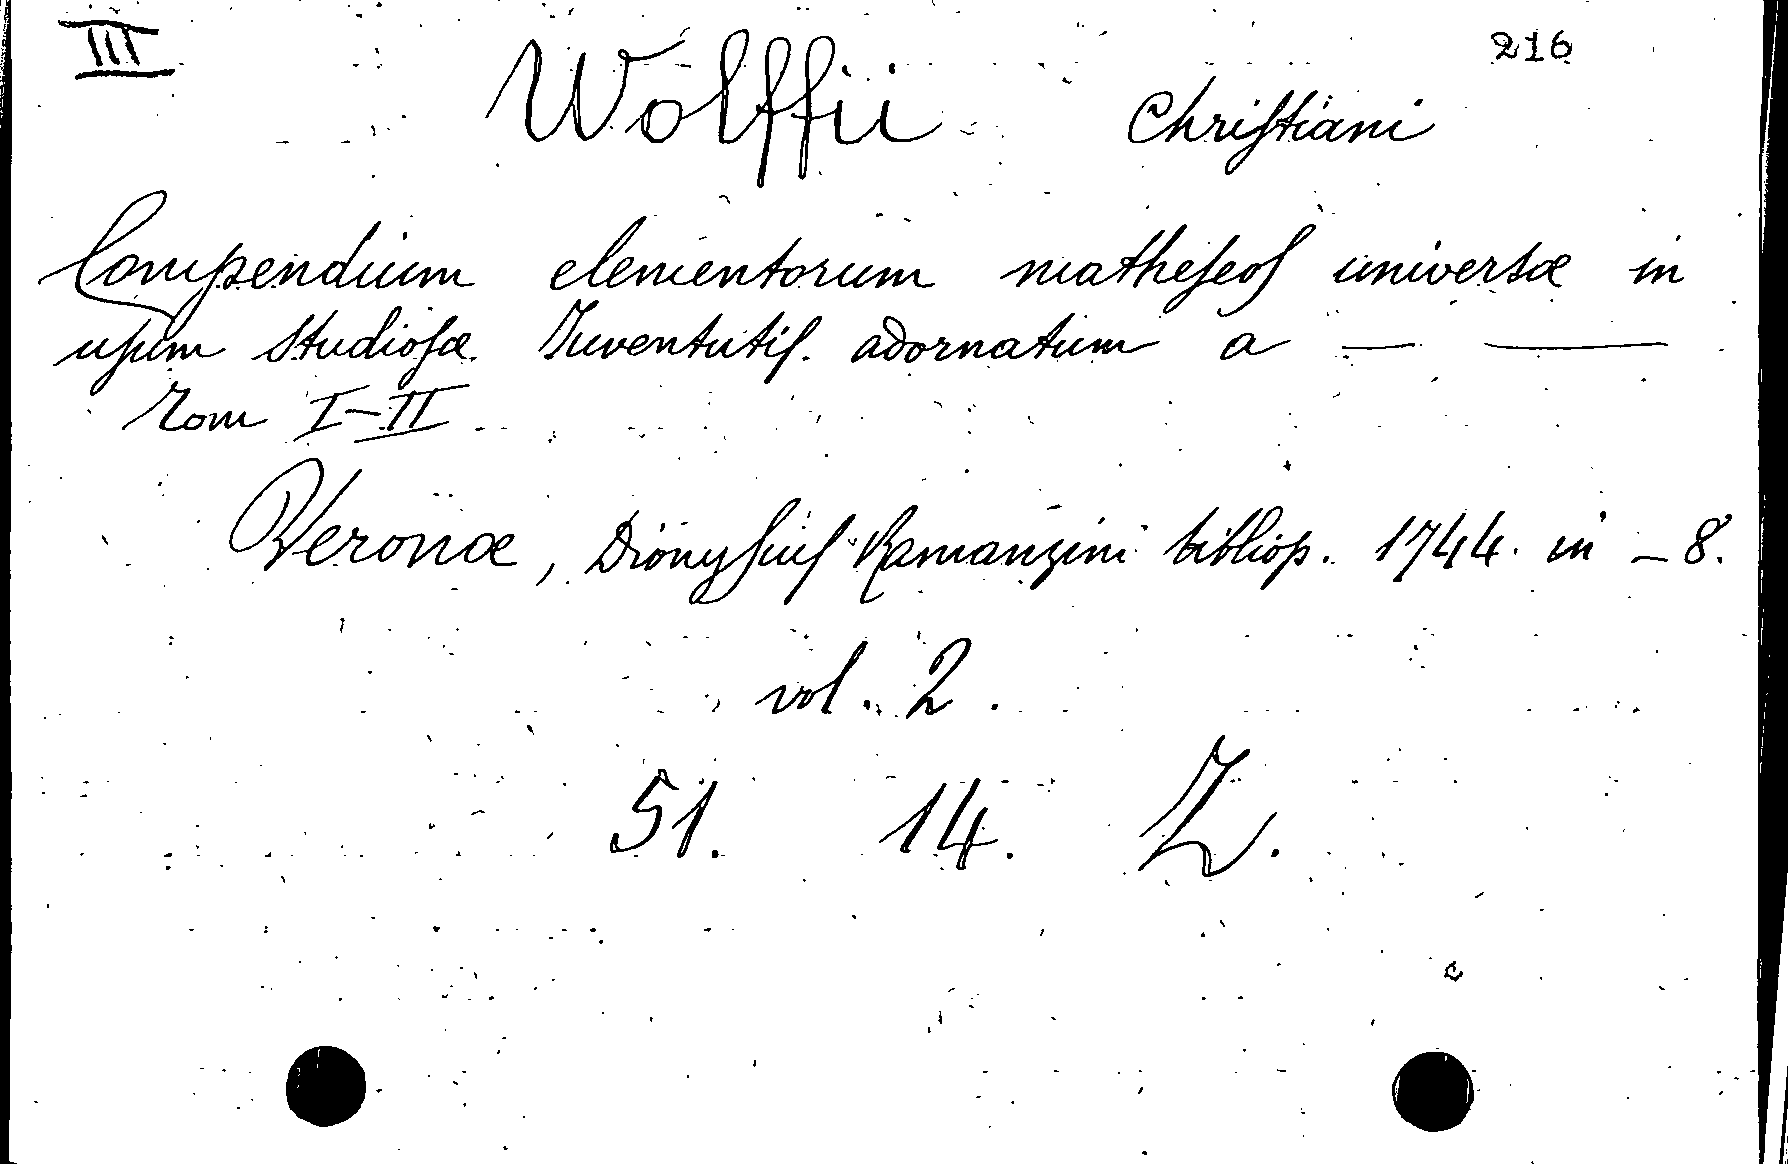 III 216
Wolffii Christiani
Compendium elementorum matheseos universæ in
usum studiosæ Juventutis. adornatum a — ——
Tom I–II
Veronæ, Dionysius Ramanzini bibliop. 1744. in – 8.
vol. 2.
51. 14. Z.